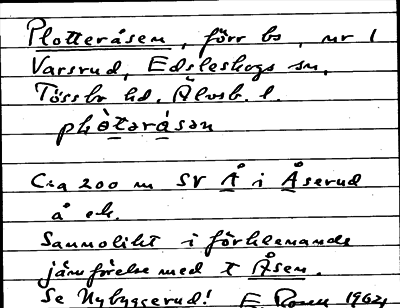 Plotteråsen, förr bs, nr 1
Varsrud, Edsleskogs sn,
Tössbo hd. Älvsb. l.
plὼtaråsan
C:a 200 m SV Å i Åserud
å ek.
Sannolikt i förklenande
jämförelse med t Åsen.
Se Nybyggerud! E Rosen 1964